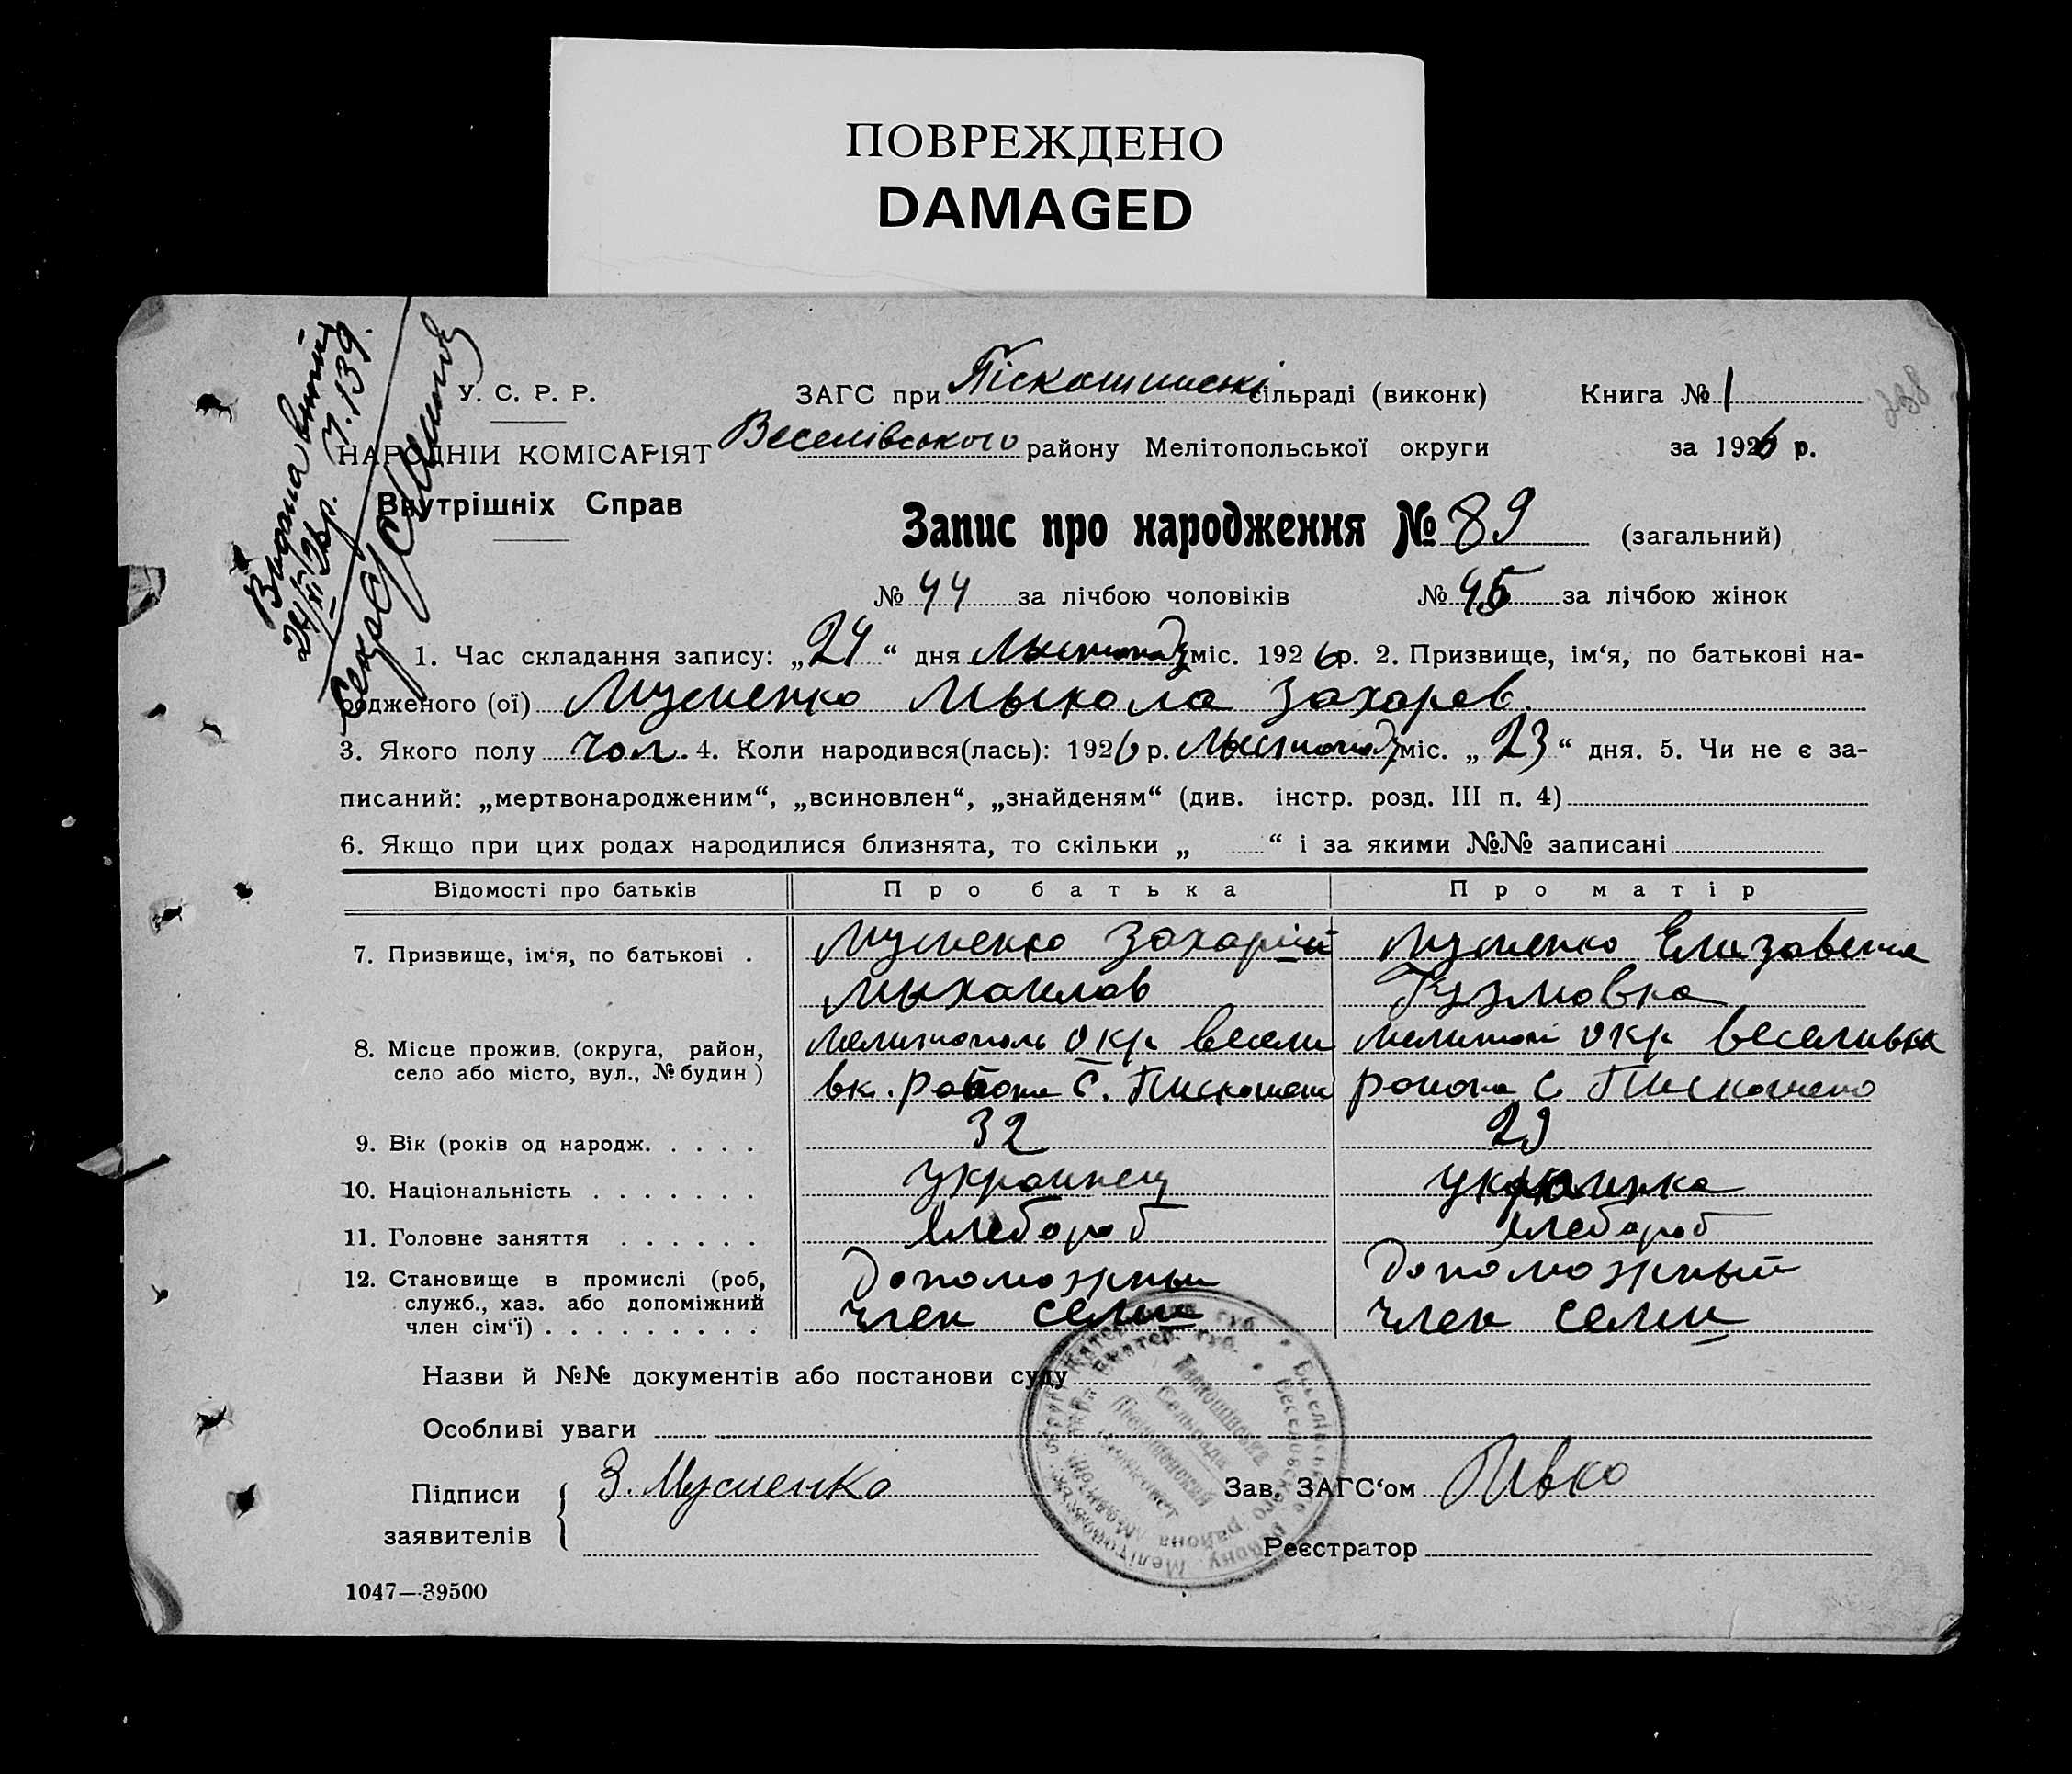 ПОВРЕЖДЕНО
DAMAGED
Видана
24/XI 26р. 139.
У. С. Р. Р.
ЗАГС при Піскошинські сільраді (виконк)
Книга № 1
238
НАРОДНІЙ КОМІСАРІЯТ
Веселівського району Мелітопольської округи
за 1926 р.
Внутрішніх Справ
Запис про народження № 89 (загальний)
№ 44 за лічбою чоловіків № 45 за лічбою жінок
1. Час складання запису: „24“ дня Лыстопаду міс. 1926 р. 2. Призвище, ім‘я, по батькові на-
родженого (ої) Мусиенко Мыкола Захаров.
3. Якого полу чол. 4. Коли народився(лась): 1926 р. Лыстопаду міс. „23“ дня. 5. Чи не є за-
писаний: „мертвонародженим“, „всиновлен“, „знайденям“ (див. інстр. розд. III п. 4)
6. Якщо при цих родах народилися близнята, то скільки „ “ і за якими №№ записані
Відомості про батьків Про батька Про матір
7. Призвище, ім‘я, по батькові . Мусиенко Захарий Мусиенко Елизавета
Мыхаилов Кузмовна
8. Місце прожив. (округа, район, Мелитополь окр Весели Мелитоп окр Веселивка
село або місто, вул., № будин) вк. района С. Пискошени района С Пискошено
9. Вік (років од народж. . . . . 32 29
10. Національність . . . . . . . украинец украинка
11. Головне заняття . . . . . . хлебороб хлебороб
12. Становище в промислі (роб, Допоможный Допоможный
служб., хаз. або допоміжний член семи член семи
член сім‘ї) . . . . . . . . .
Назви й №№ документів або постанови суду
Особливі уваги
Підписи З. Мусиенко Зав. ЗАГС‘ом Пивко
заявителів Реєстратор
1047—39500